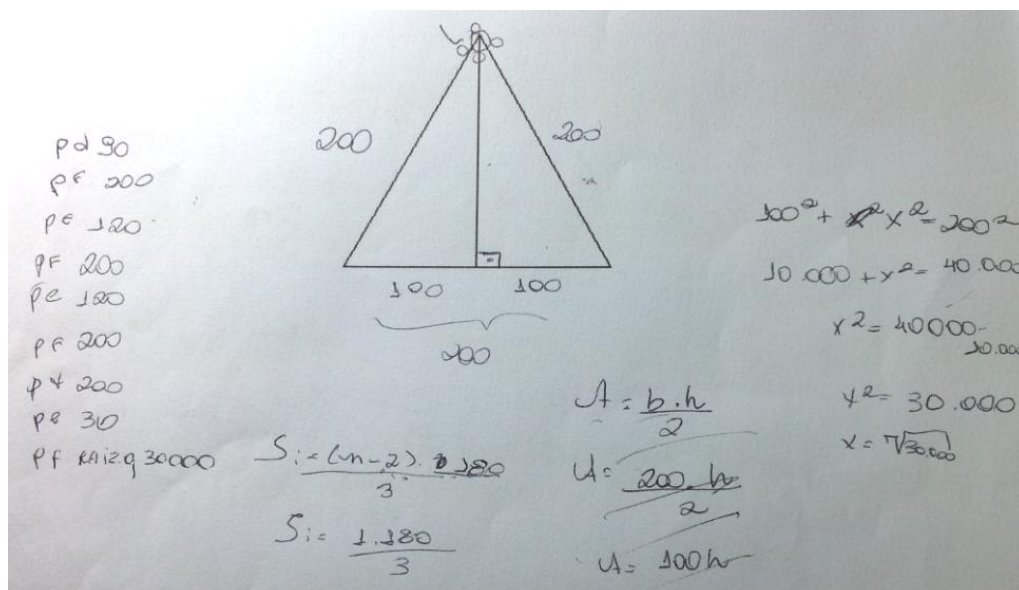 pd 90
pf 200
pe 120
pf 200
pe 120
pf 200
pt 200
pe 30
pf raizq 30000
200
200
100
100
200
Si = (n-2). 180
3
Si = 1.180
3
A = b.h
2
A = 200.h
2
A = 100h
100² + x² x² = 200²
10.000 + x² = 40.000
x² = 40000-
10.000
x² = 30.000
x = √30.000